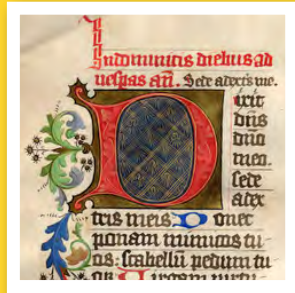 In dominicis diebus ad
uesp̃as añ. Sede adextrís me.
Dixit
dñs
dño
meo.
sede
adex
tris meis. Donec
ponam inimicos tu-
os: scabellū pedum tu
Uirgam uirtu-